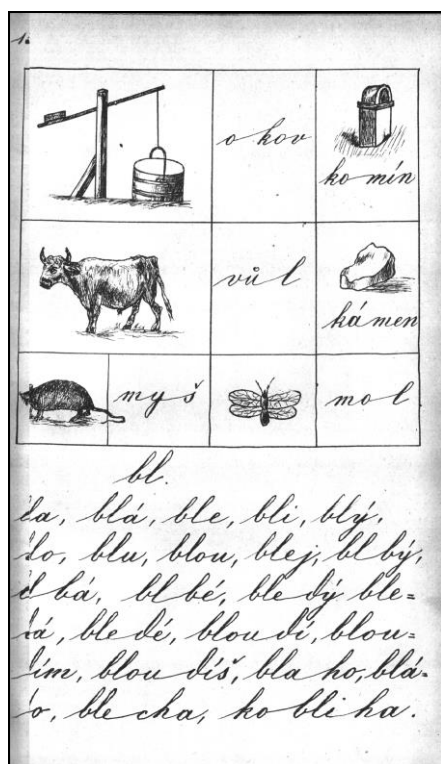 1.
o kov
ko mín
vůl
ká men
myš
mol
bl.
bla, blá, ble, bli, blý,
blo, blu, blou, blej, bl bý,
bl bá, bl bé, ble dý ble=
dá, ble dé, blou dí, blou=
dím, blou díš, bla ho, blá=
to, ble cha, ko bli ha.